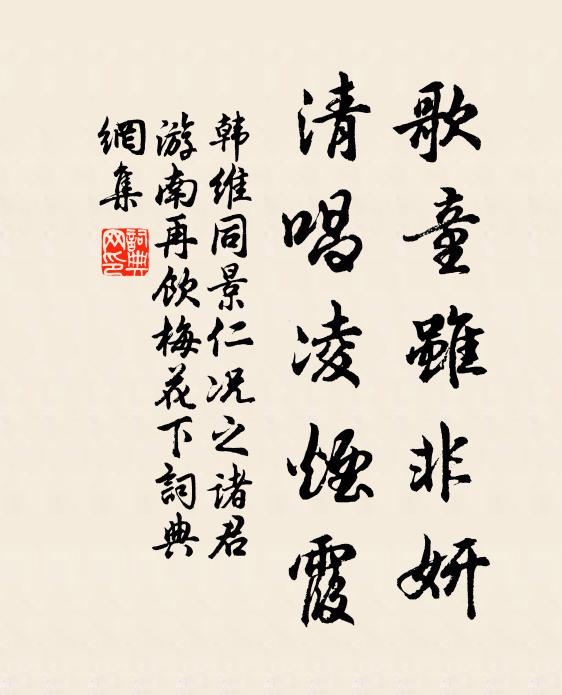 歌童雖非妍
清唱凌煙霞
韩维同景仁况之诸君
游南再饮梅花下詞典
網集
詞典
网印